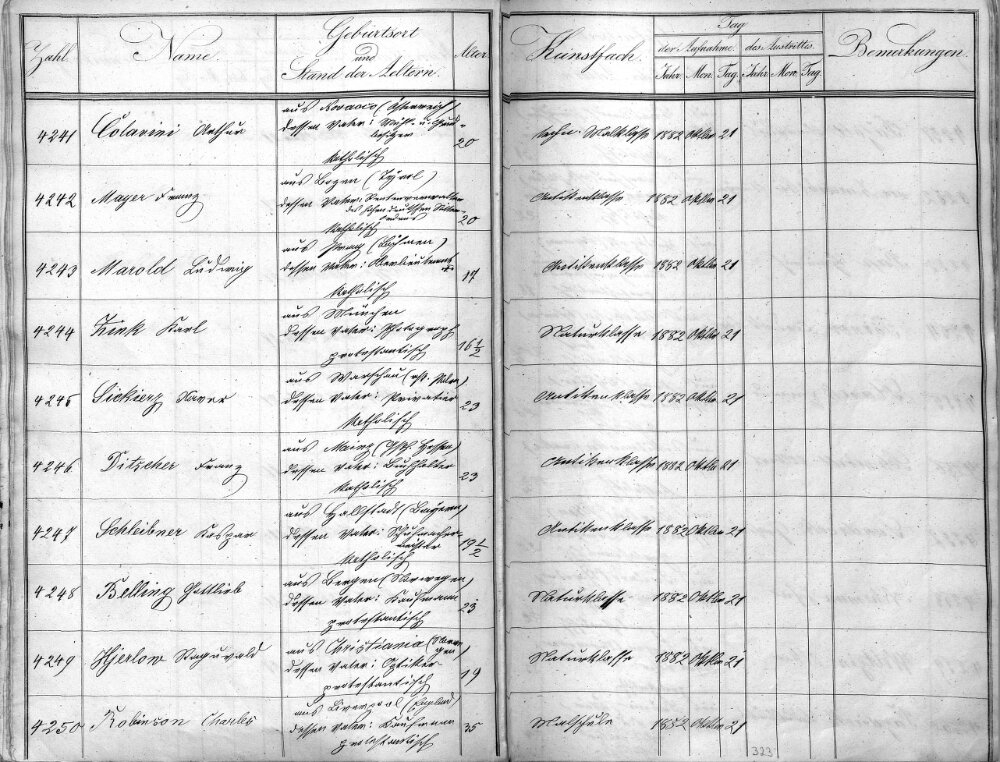 Zahl. Name. Geburtsort und Stand der Aeltern. Alter. Kunstfach. Tag der Aufnahme. des Austrittes. Bemerkungen.
Jahr. Mon. Tag. Jahr. Mon. Tag.
aus Rovasco (Österreich)
4241 Colarini Arthur dessen Vater: 20 techn. Malklasse 1882 Oktbr 21
katholisch
aus Bozen (Tyrol)
4242 Mayer Franz dessen Vater: Rentenverwalter 20 Antikenklasse 1882 Oktbr 21
des hohen deutschen Ritter-
ordens
katholisch
aus Prag (Böhmen)
4243 Marold Ludwig dessen Vater: Oberlieutenant 17 Antikenklasse 1882 Oktbr 21
katholisch
aus München
4244 Zink Karl dessen Vater: Photograph 16 1/2 Naturklasse 1882 Oktbr 21
protestantisch
aus Warschau (russ. Polen)
4245 Sickierz Xaver dessen Vater: Privatier 23 Antikenklasse 1882 Oktbr 21
katholisch
aus Mainz (Gßh. Hessen)
4246 Ditscher Franz dessen Vater: Buchhalter 23 Antikenklasse 1882 Oktbr 21
katholisch
aus Hallstadt (Bayern)
4247 Schleibner Kaspar dessen Vater: Schuhmacher 19 1/2 Antikenklasse 1882 Oktbr 21
katholisch
aus Bergen (Norwegen)
4248 Kelling Gottlieb dessen Vater: Kaufmann 23 Naturklasse 1882 Oktbr 21
protestantisch
aus Christiania (Norwe-
gen)
4249 Hjerlow Raguvald dessen Vater: Optiker 19 Naturklasse 1882 Oktbr 21
protestantisch
aus Liverpool (England)
4250 Robinson Charles dessen Vater: Kaufmann 35 Malschule 1882 Oktbr 21
protestantisch
323